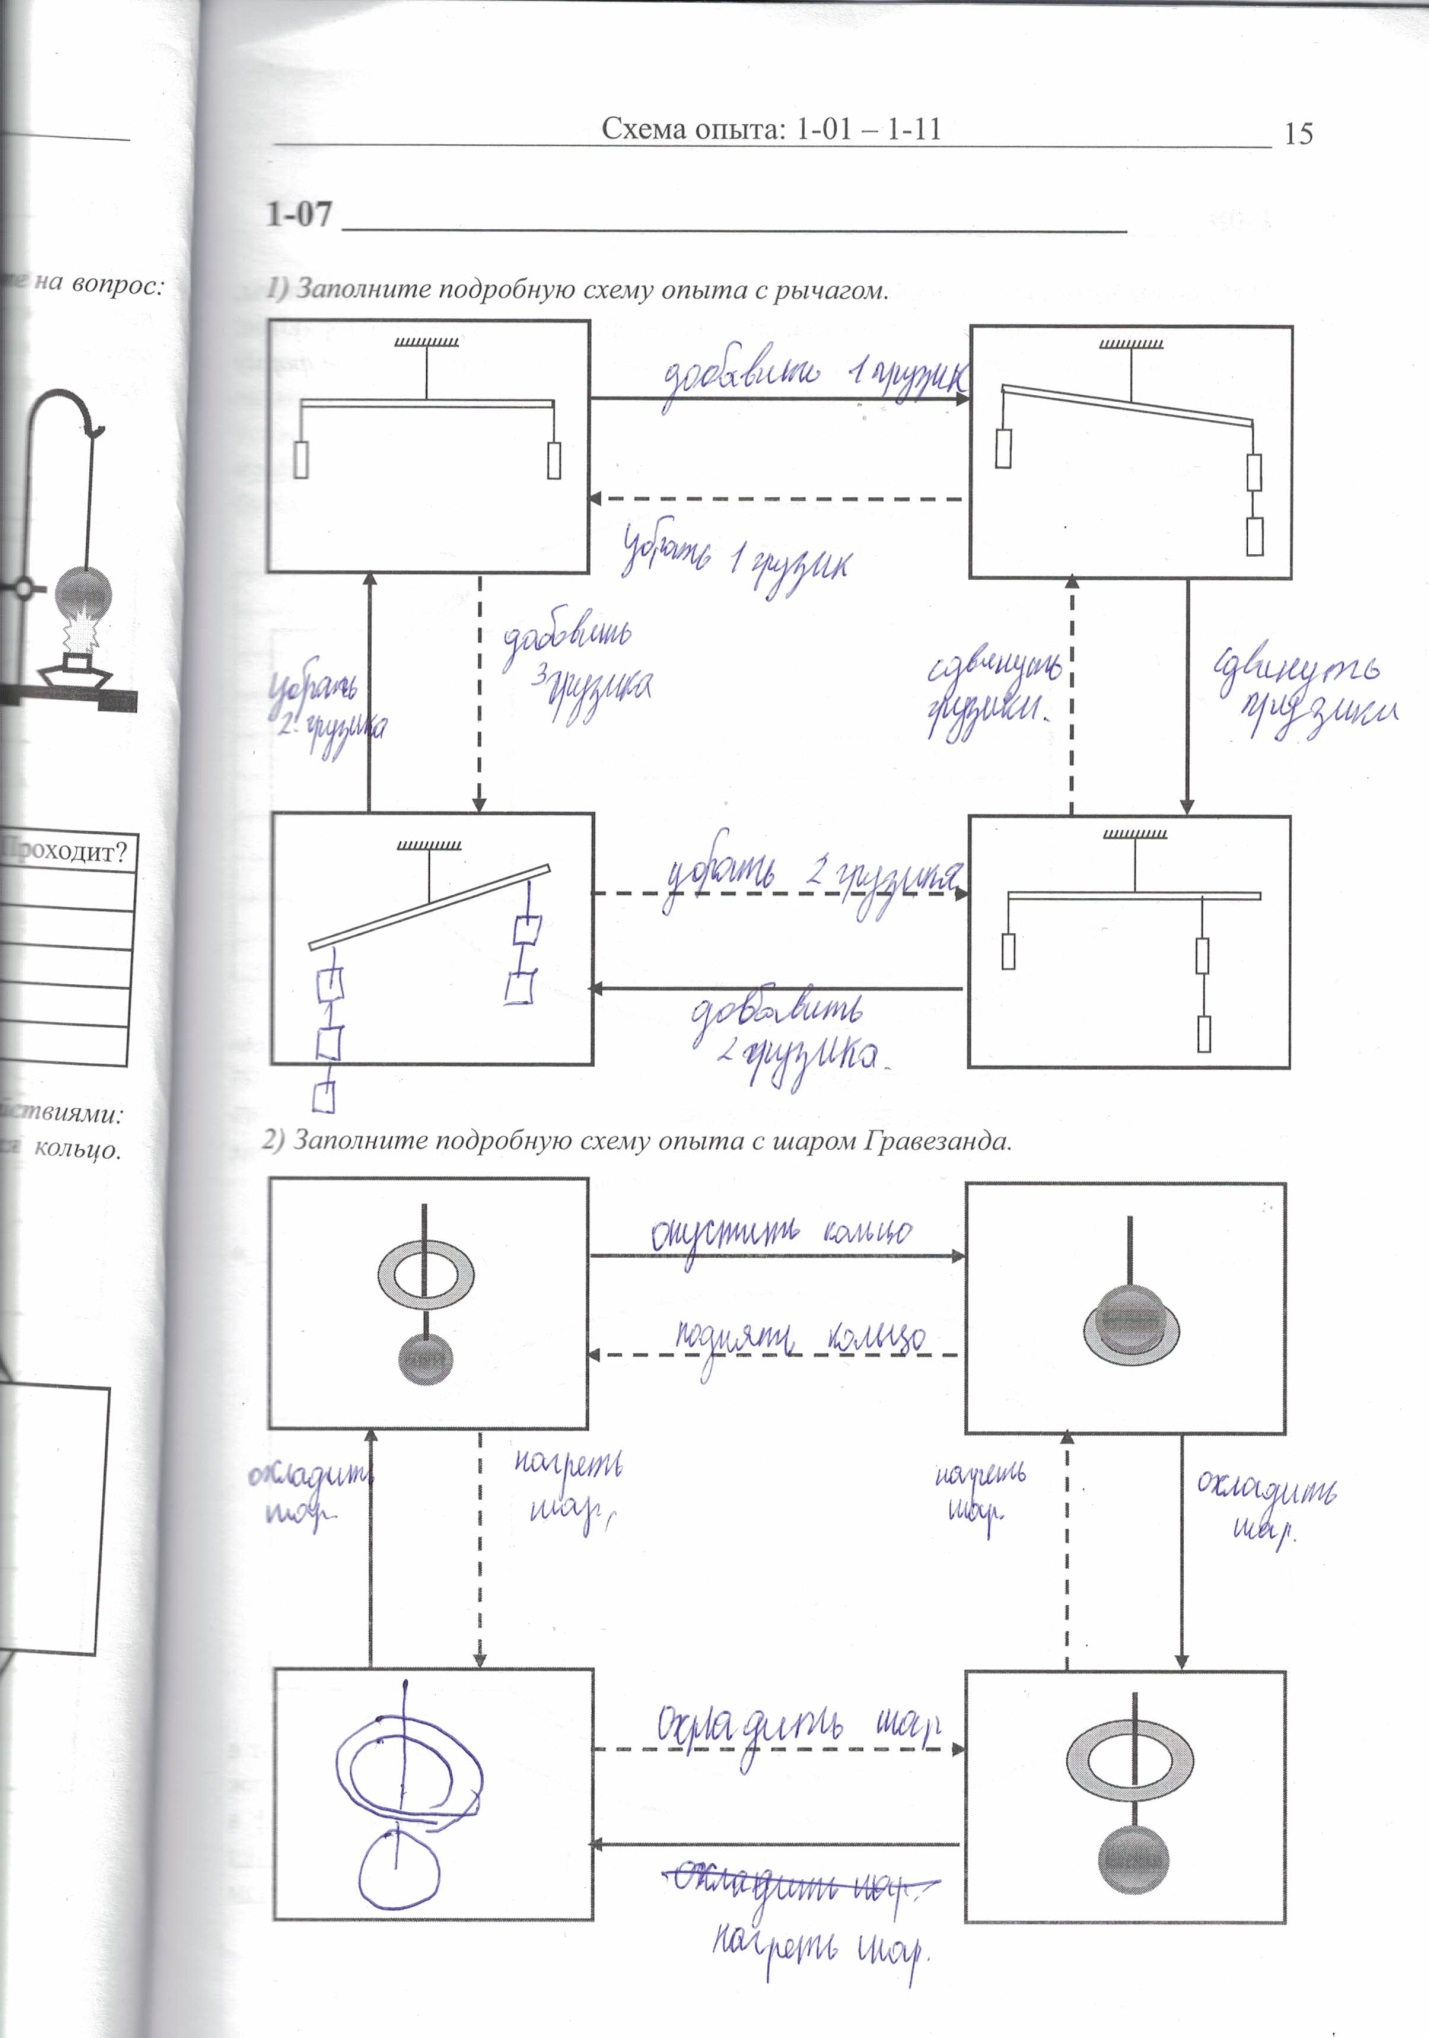 Схема опыта: 1-01 – 1-11
15
1-07
на вопрос:
1) Заполните подробную схему опыта с рычагом.
добавить 1 грузик
убрать 1 грузик
добавить
3 грузика
убрать
2 грузика
сдвинуть
грузики.
сдвинуть
грузики
Проходит?
убрать 2 грузика
добавить
2 грузика.
ствиями:
кольцо.
2) Заполните подробную схему опыта с шаром Гравезанда.
опустить кольцо
поднять кольцо
охладить
шар.
нагреть
шар,
нагреть
шар.
охладить
шар.
охладить шар
охладить шар.
нагреть шар.